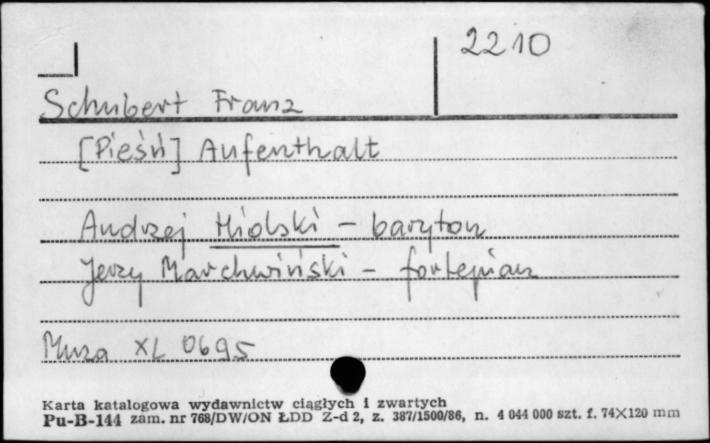 2210
Schubert Franz
[Pieśń] Aufenthalt
Andrzej Hiolski - baryton
Jerzy Marchwiński - fortepian
Muza XL 0695
Karta katalogowa wydawnictw ciągłych i zwartych
Pu-B-144 zam. nr 768/DW/ON ŁDD Z-d 2, z. 387/1500/86, n. 4 044 000 szt. f. 74X120 mm